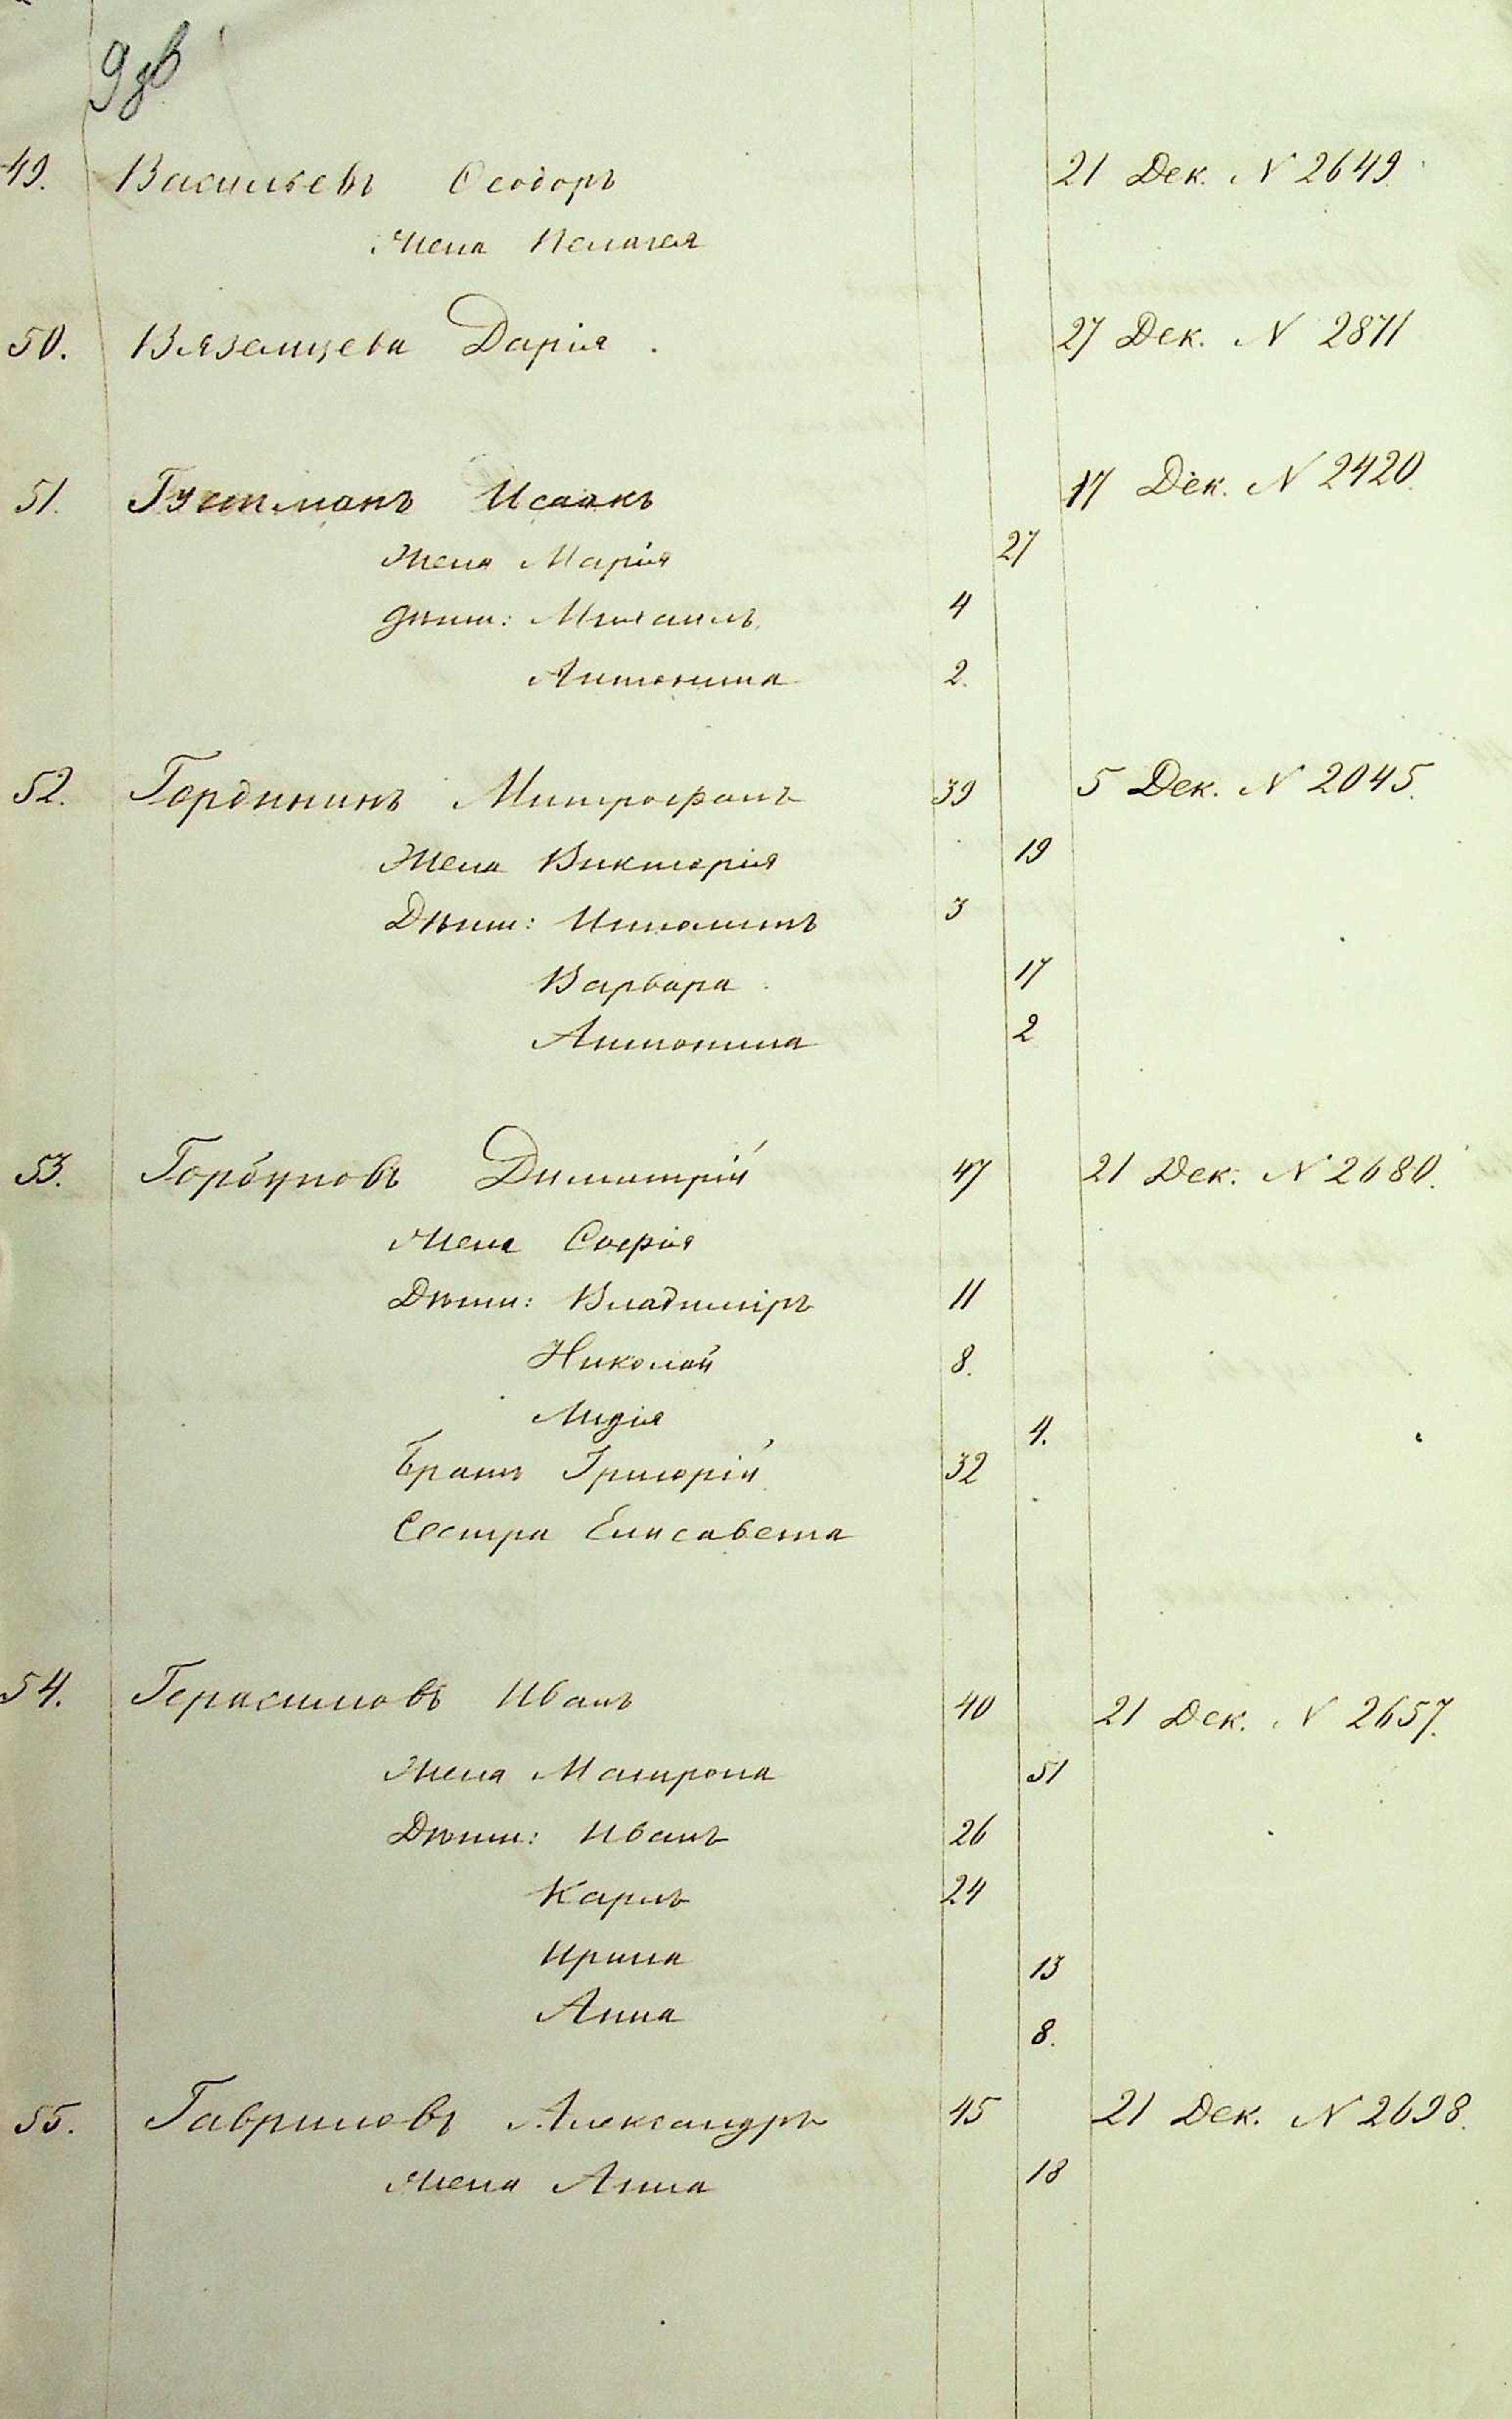 9об
49. Васильевъ Ѳеодоръ 21 Дек. N 2649
Жена Пелагея
50. Вяземцева Дарія. 27 Дек. N 2871
51. Густманъ Исаакъ 17 Дек. N 2420
Жена Марія 27
дѣти: Михаилъ 4
Антонина 2.
52. Гординъ Митрофанъ 39 5 Дек. N 2045.
Жена Викторія 19
Дѣти: 3
Варвара 17
Антонина 2
53. Горбуновъ Димитрій 47 21 Дек. N 2680.
Жена Софія
Дѣти: Владиміръ 11
Николай 8.
Лидія 4.
Братъ Григорій 32
Сестра Елисавета
54. Герасимовъ Иванъ 40 21 Дек. N 2657.
Жена Матрона 51
Дѣти: Иванъ 26
Карпъ 24
Ирина 13
Анна 8.
55. Гавриловъ Александръ 45 21 Дек. N 2698.
Жена Анна 18